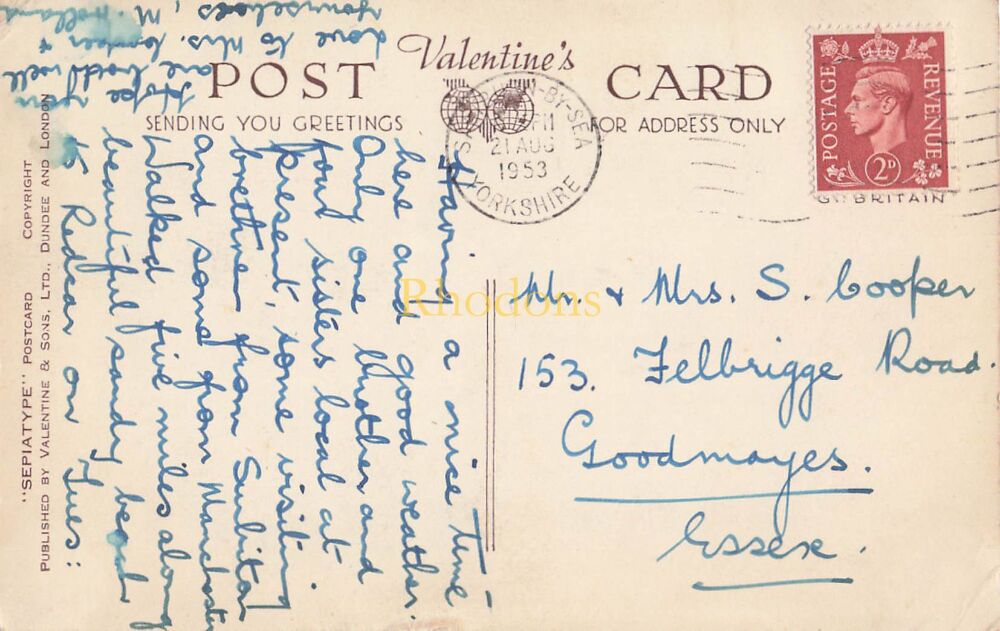 Valentine's
POST CARD
SENDING YOU GREETINGS
FOR ADDRESS ONLY
"SEPIATYPE" POSTCARD COPYRIGHT
PUBLISHED BY VALENTINE & SONS, LTD., DUNDEE AND LONDON
-BY-SEA
21 AUG
1953
YORKSHIRE
POSTAGE
REVENUE
2D
GT. BRITAIN
Having a nice time
here and good weather.
Only one brother and
four sisters local at
present, some visiting
brethren from Surbiton
and some from Manchester
Walked five miles along
beautiful sandy beach
to Redcar on Tues:
Hope you
are both well
Love to Mrs. Cooper &
yourselves, M. Holland
Mr. & Mrs. S. Cooper
153. Felbrigge Road.
Goodmayes.
Essex.
Rhodons